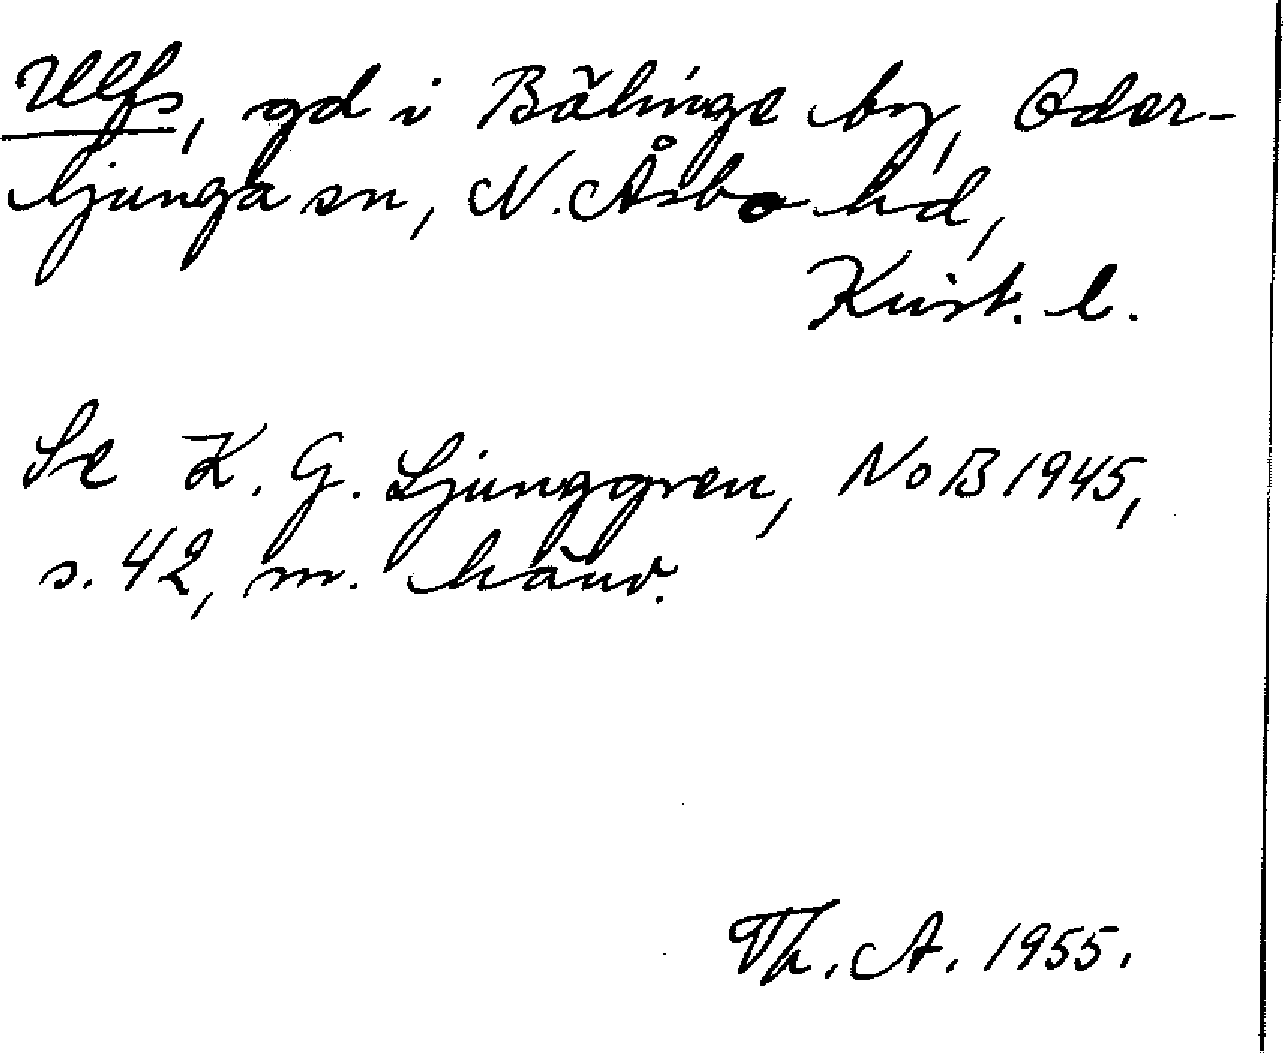 Ulfs, gd i Bälinge by, Oder-
ljunga sn, N. Åsbo hd,
Krist. l.
Se K. G. Ljunggren, NoB 1945,
s. 42, m. hänv.
Th. A. 1955.